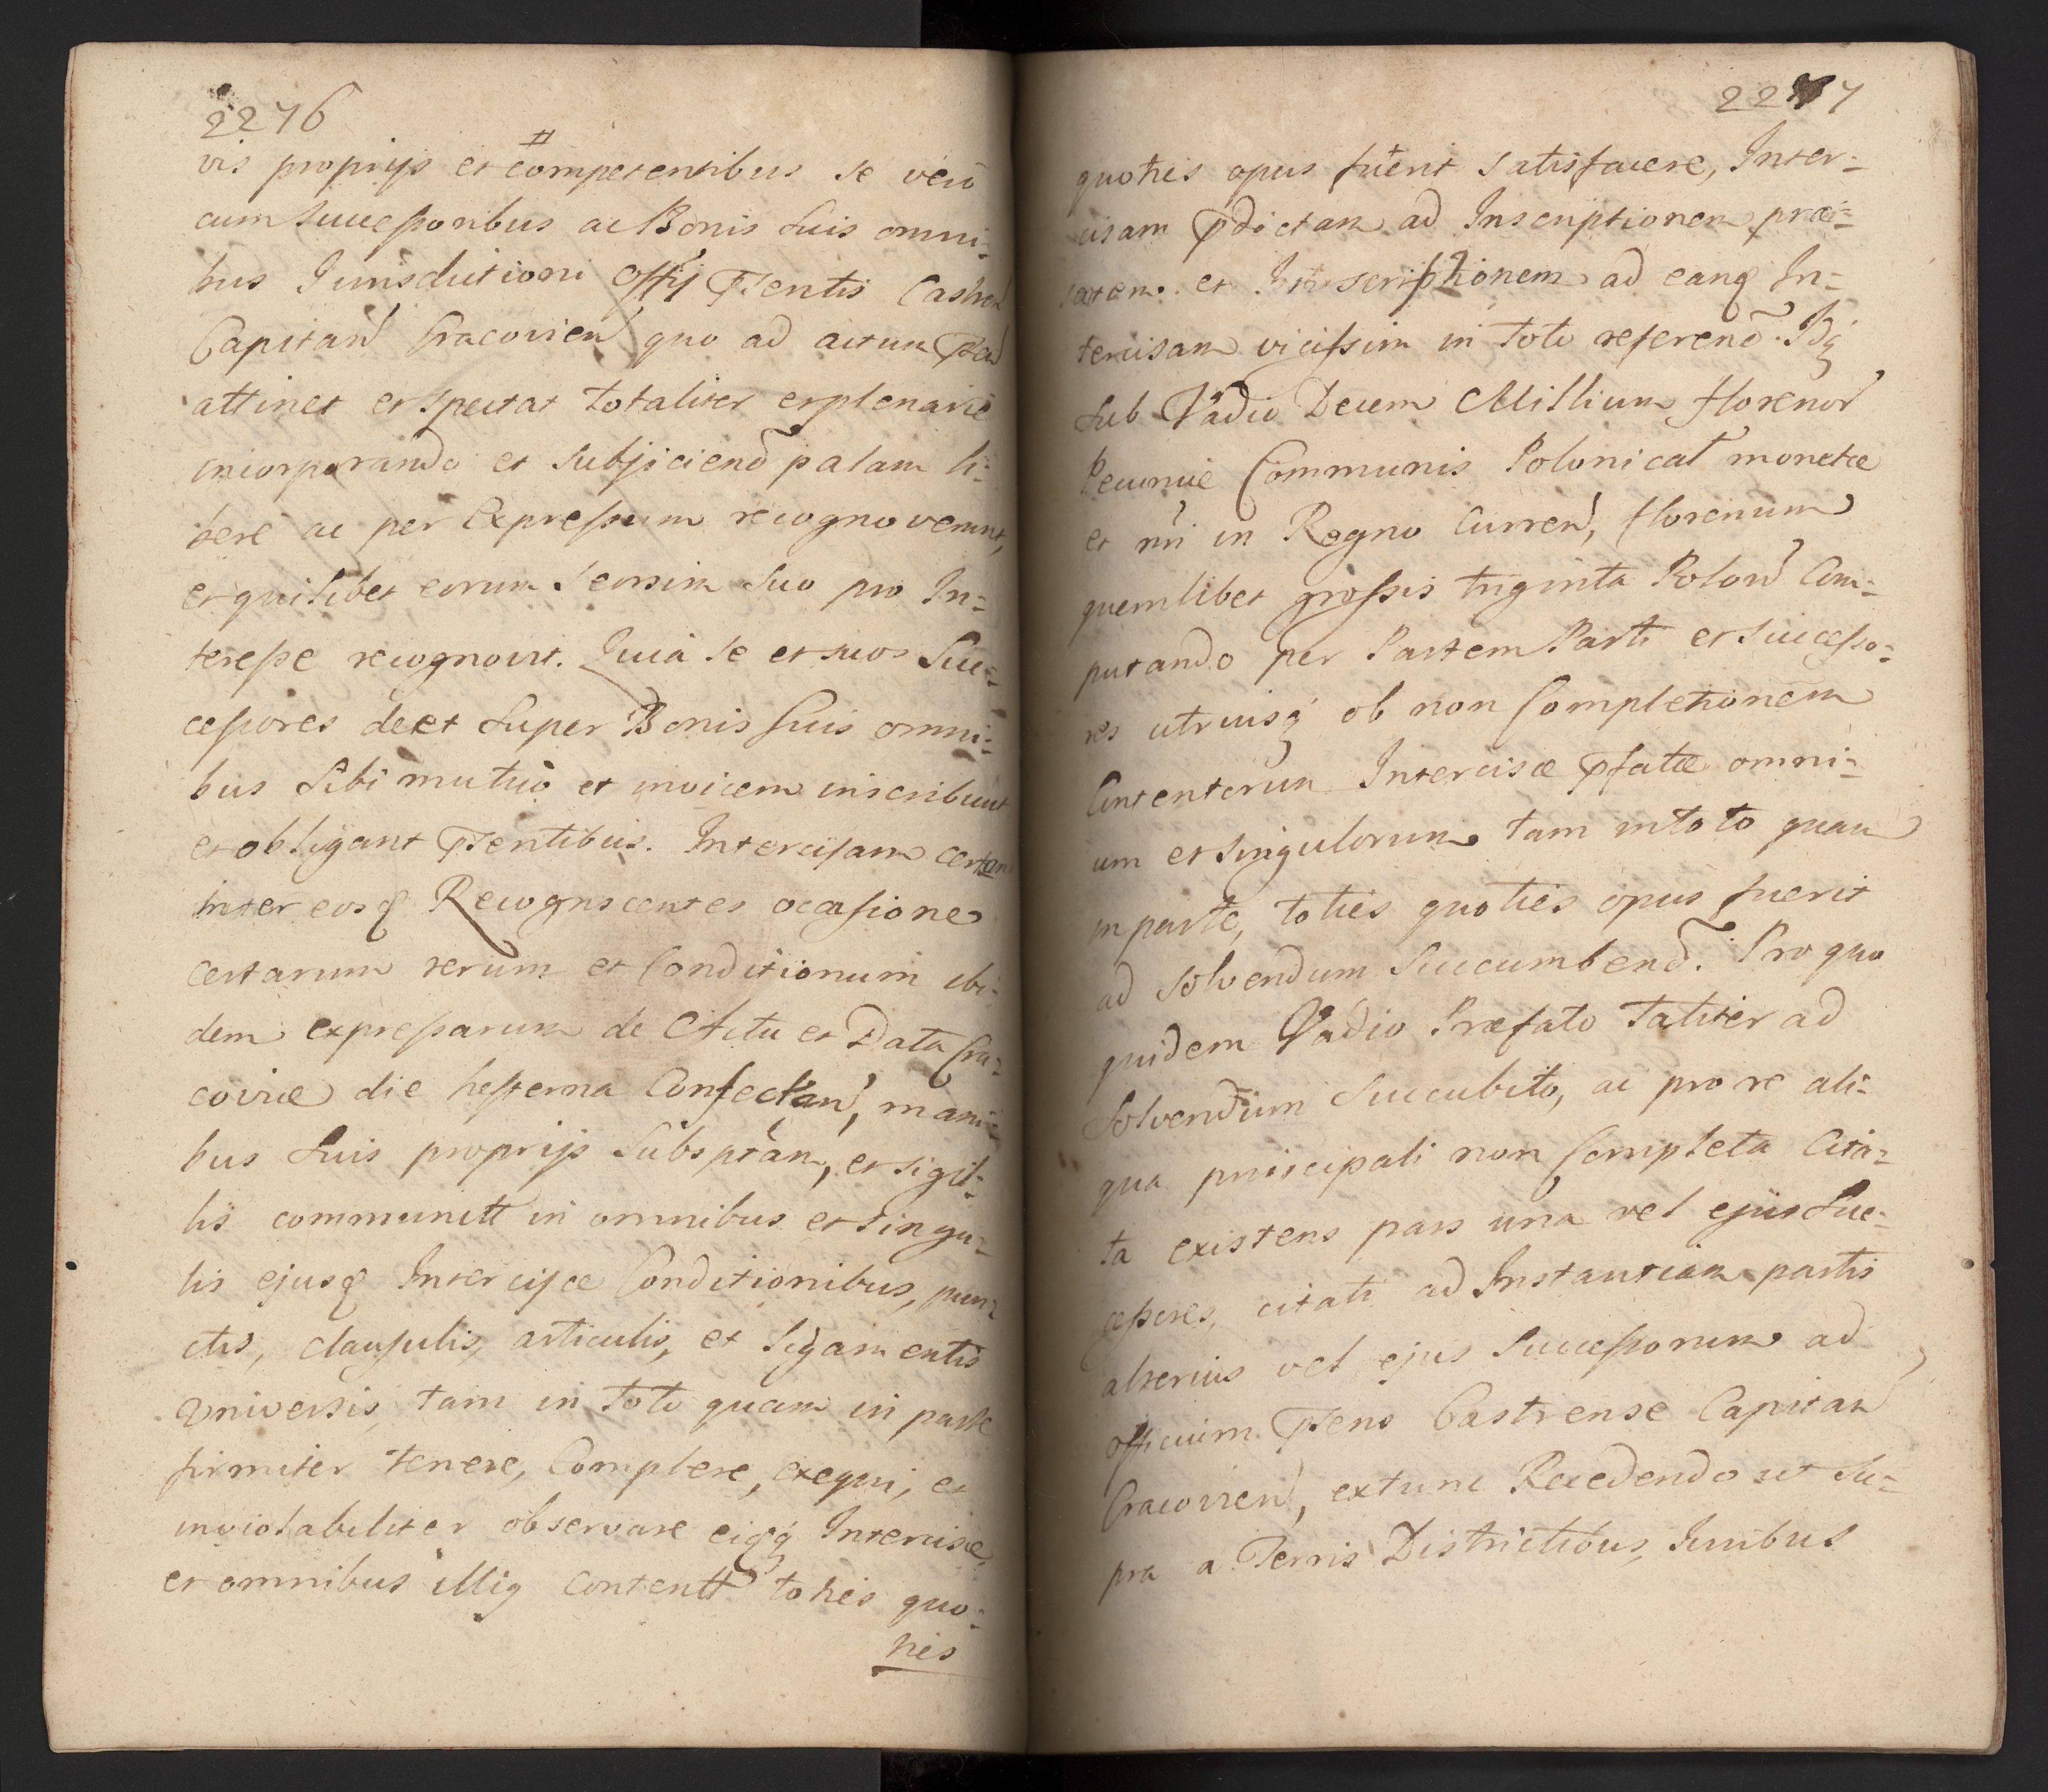 2276
vis proprijs et competentibus se vero
cum Successoribus ac Bonis Suis omni-
bus Jurisdictioni Offij Psentis Castren
Capitan Cracovien quo ad actum Psen
attinet et spectat totaliter et plenarie
incorporando et Subjiciend palam li-
bere ac per Expressum recognoverunt,
et quilibet eorum Seorsim Suo pro In-
teresse recognovit. Quia Se et suos Suc-
cessores de et Super Bonis Suis omni-
bus Sibi mutuo et invicem inscribunt
et obligant Psentibus. Intercisam certam
inter eosq Recognoscentes occasione
certarum rerum et Conditionum ibi-
dem expressarum de Actu et Data Cra-
coviæ die hesterna Confectam, mani-
bus Suis proprijs Subsptam, et sigil-
lis communitt in omnibus et singu-
lis ejusq Intercisæ Conditionibus, pun-
ctis, clausulis, articulis, et Ligamentis
Universis, tam in toto quam in parte
firmiter tenere, Complere, exequi, et
inviolabiliter observare eiqq Intercisæ
et omnibus illiq contentt toties quo-
ties
2277
quoties opus fuerit satisfacere, Inter-
cisam Pdictam ad Inscriptionem præ-
sentem et Inscriptionem ad eanq In-
tercisam vicissim in toto referend. Idq
Sub Vadio Decem Millium florenor
Pecuniæ Communis Polonical monetæ
et nri in Regno Curren, florenum
quemlibet grossis triginta Polon Com-
putando per Partem Parti et successo-
res utriusq ob non Completionem
Contentorum Intercisæ Pfatæ omni-
um et singulorum tam in toto quam
in parte, toties quoties opus fuerit
ad solvendum Succumbend. Pro quo
quidem Vadio Præfato taliter ad
Solvendum Succubito, ac pro re ali-
qua principali non Completa Cita-
ta existens pars una vel ejus Suc-
cessores, citati ad Instantiam partis
alterius vel ejus Successorum ad
officium Psens Castrense Capitan
Cracovien, extunc Recedendo ut Su-
pra a Terris Districtibus, Juribus